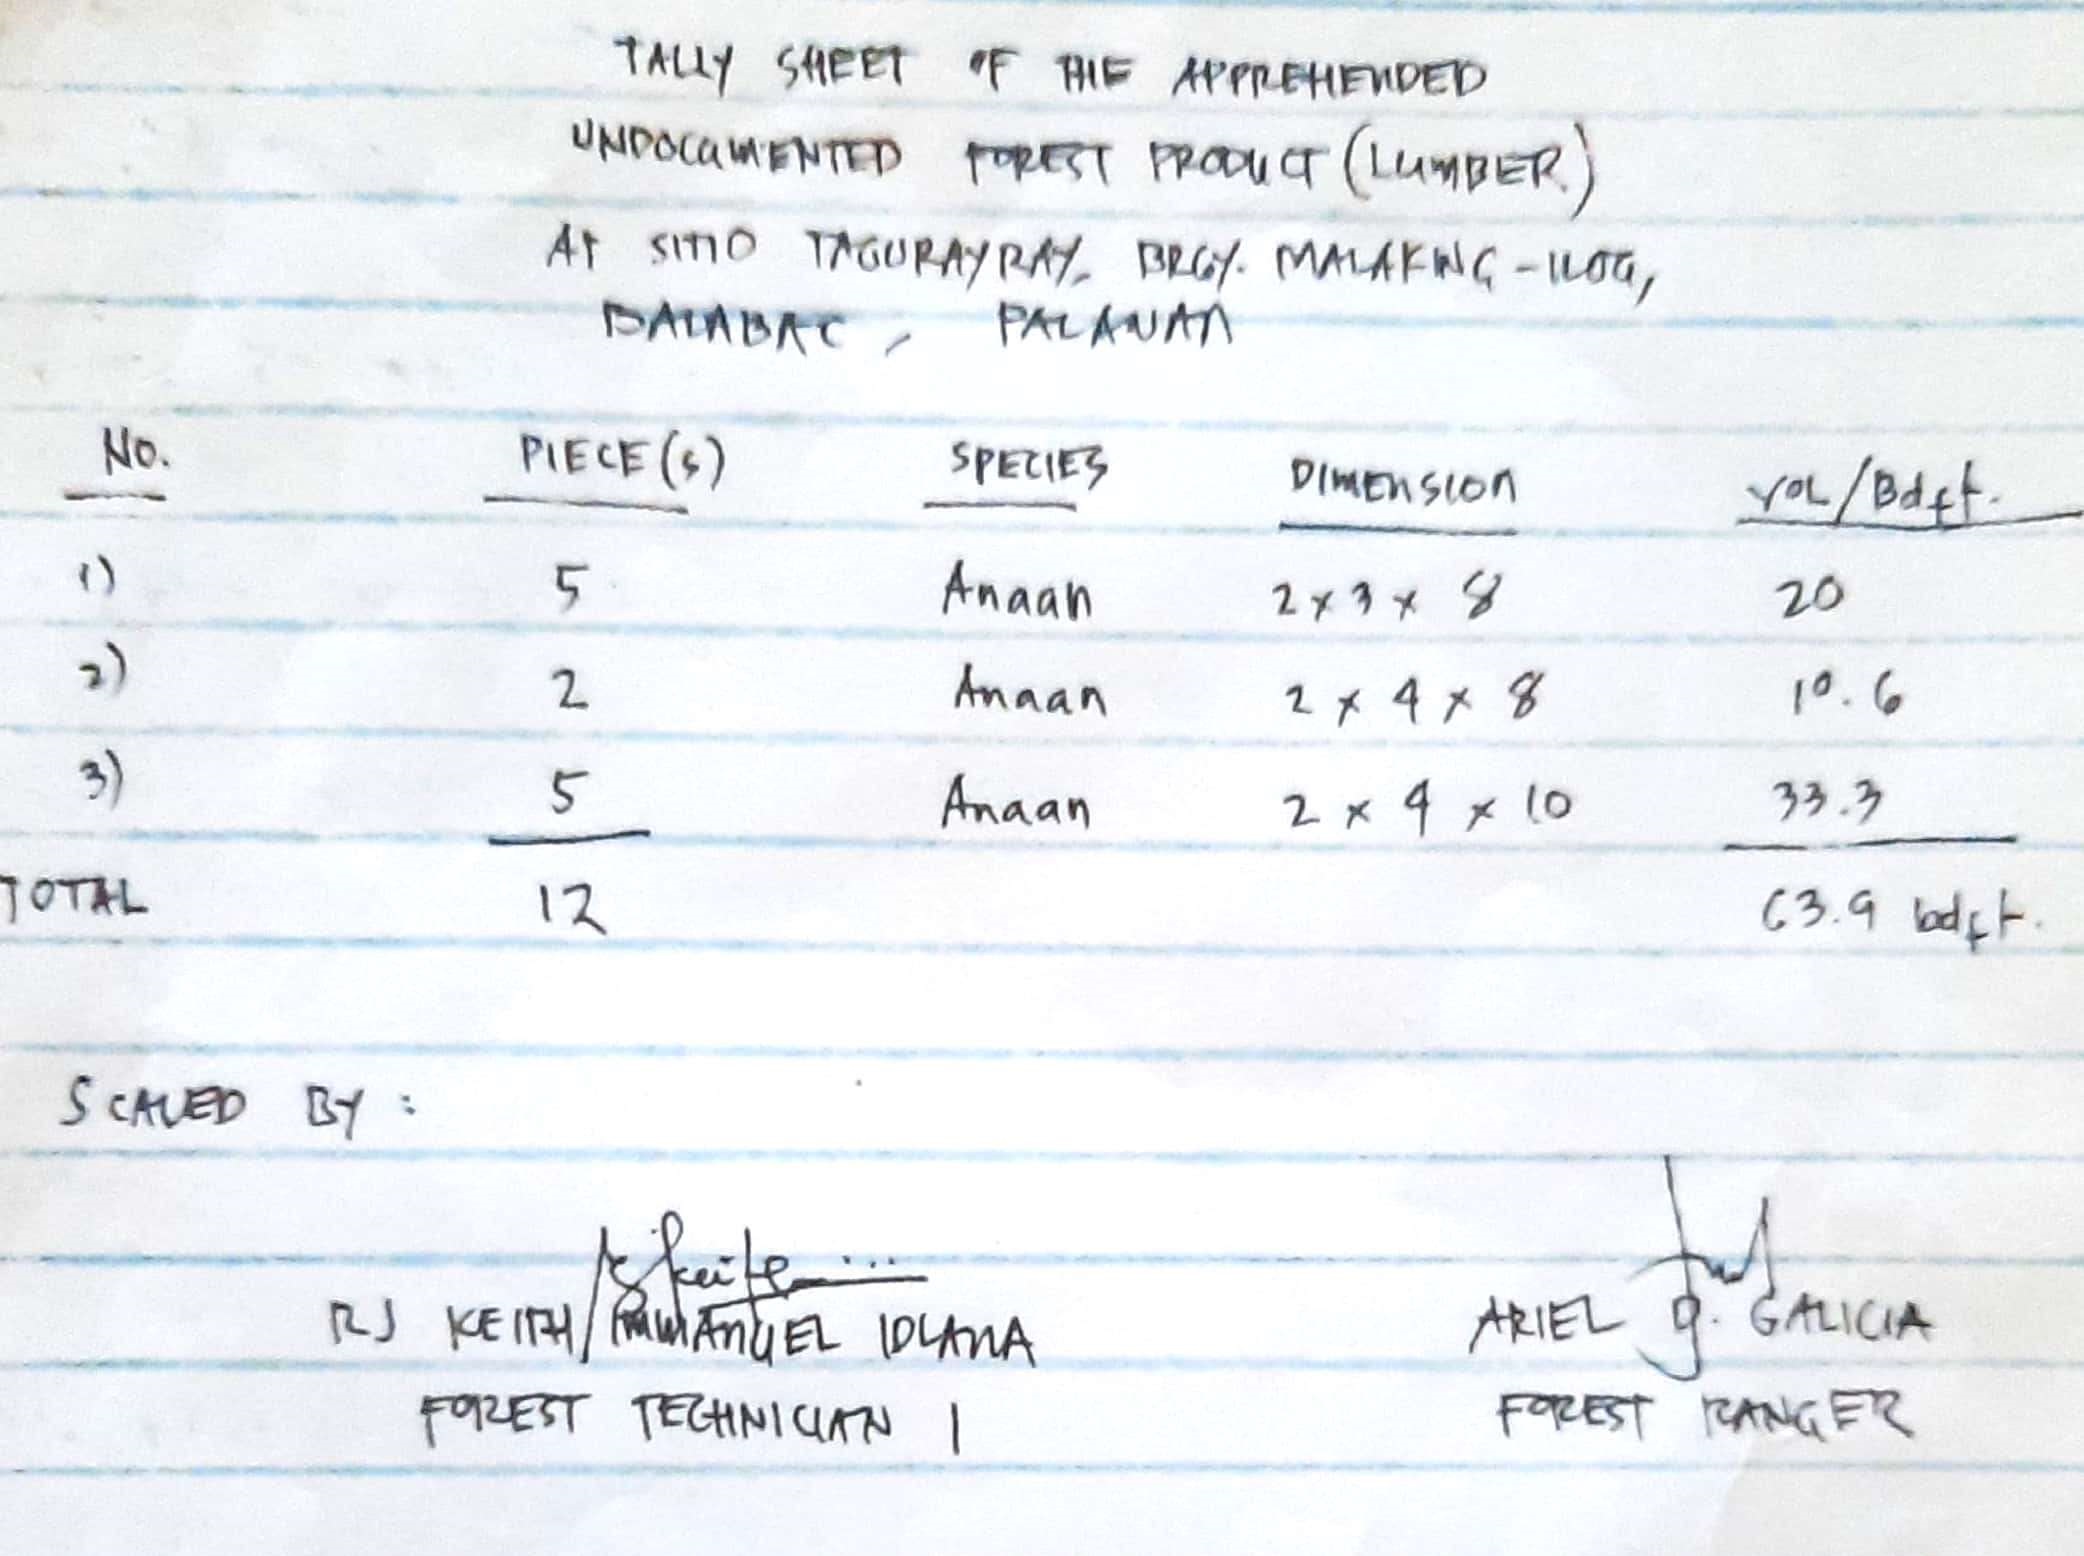 TALLY SHEET OF THE APPREHENDED
UNDOCUMENTED FOREST PRODUCT (LUMBER)
AT SITIO TAGURAYRAY, BRGY. MALAKING-ILOG,
BALABAC, PALAWAN
NO. PIECE(s) SPECIES DIMENSION VOL/Bdft.
1) 5 Anaan 2 x 3 x 8 20
2) 2 Anaan 2 x 4 x 8 10.6
3) 5 Anaan 2 x 4 x 10 33.3
TOTAL 12 63.9 bdft.
SCALED BY:
RJ KEITH IMMANUEL IDLANA ARIEL J. GALICIA
FOREST TECHNICIAN 1 FOREST RANGER